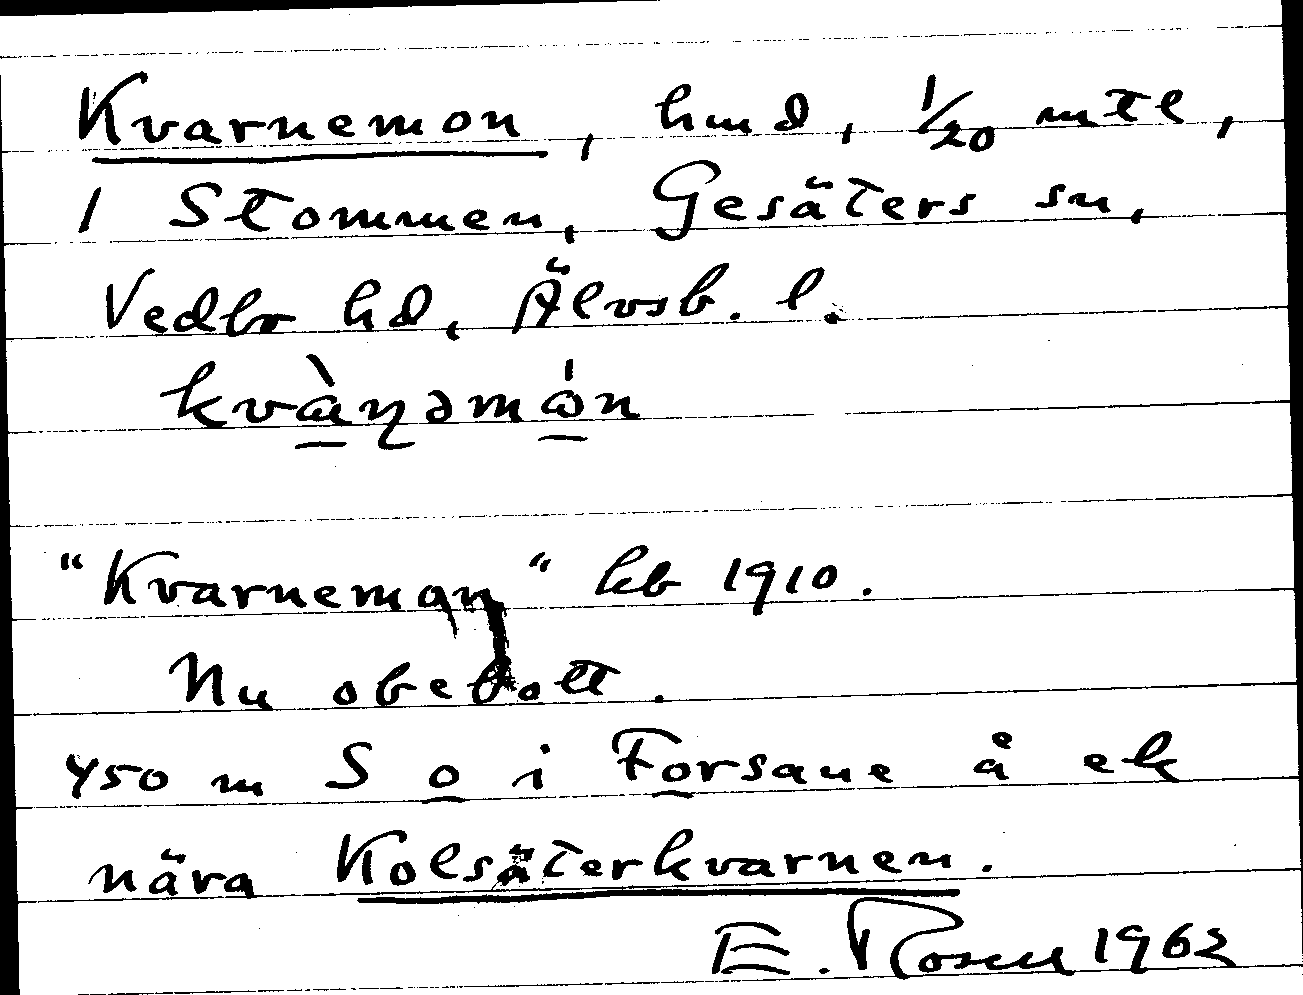 Kvarnemon, hmd, 1/20 mtl,
1 Stommen, Gesäters sn,
Vedbo hd, Älvsb. l.
kvàɳəmón
"Kvarnemon" kb 1910.
Nu obebott.
450 m S o i Forsane å ek
nära Kolsäterkvarnen.
E. Rosell 1962